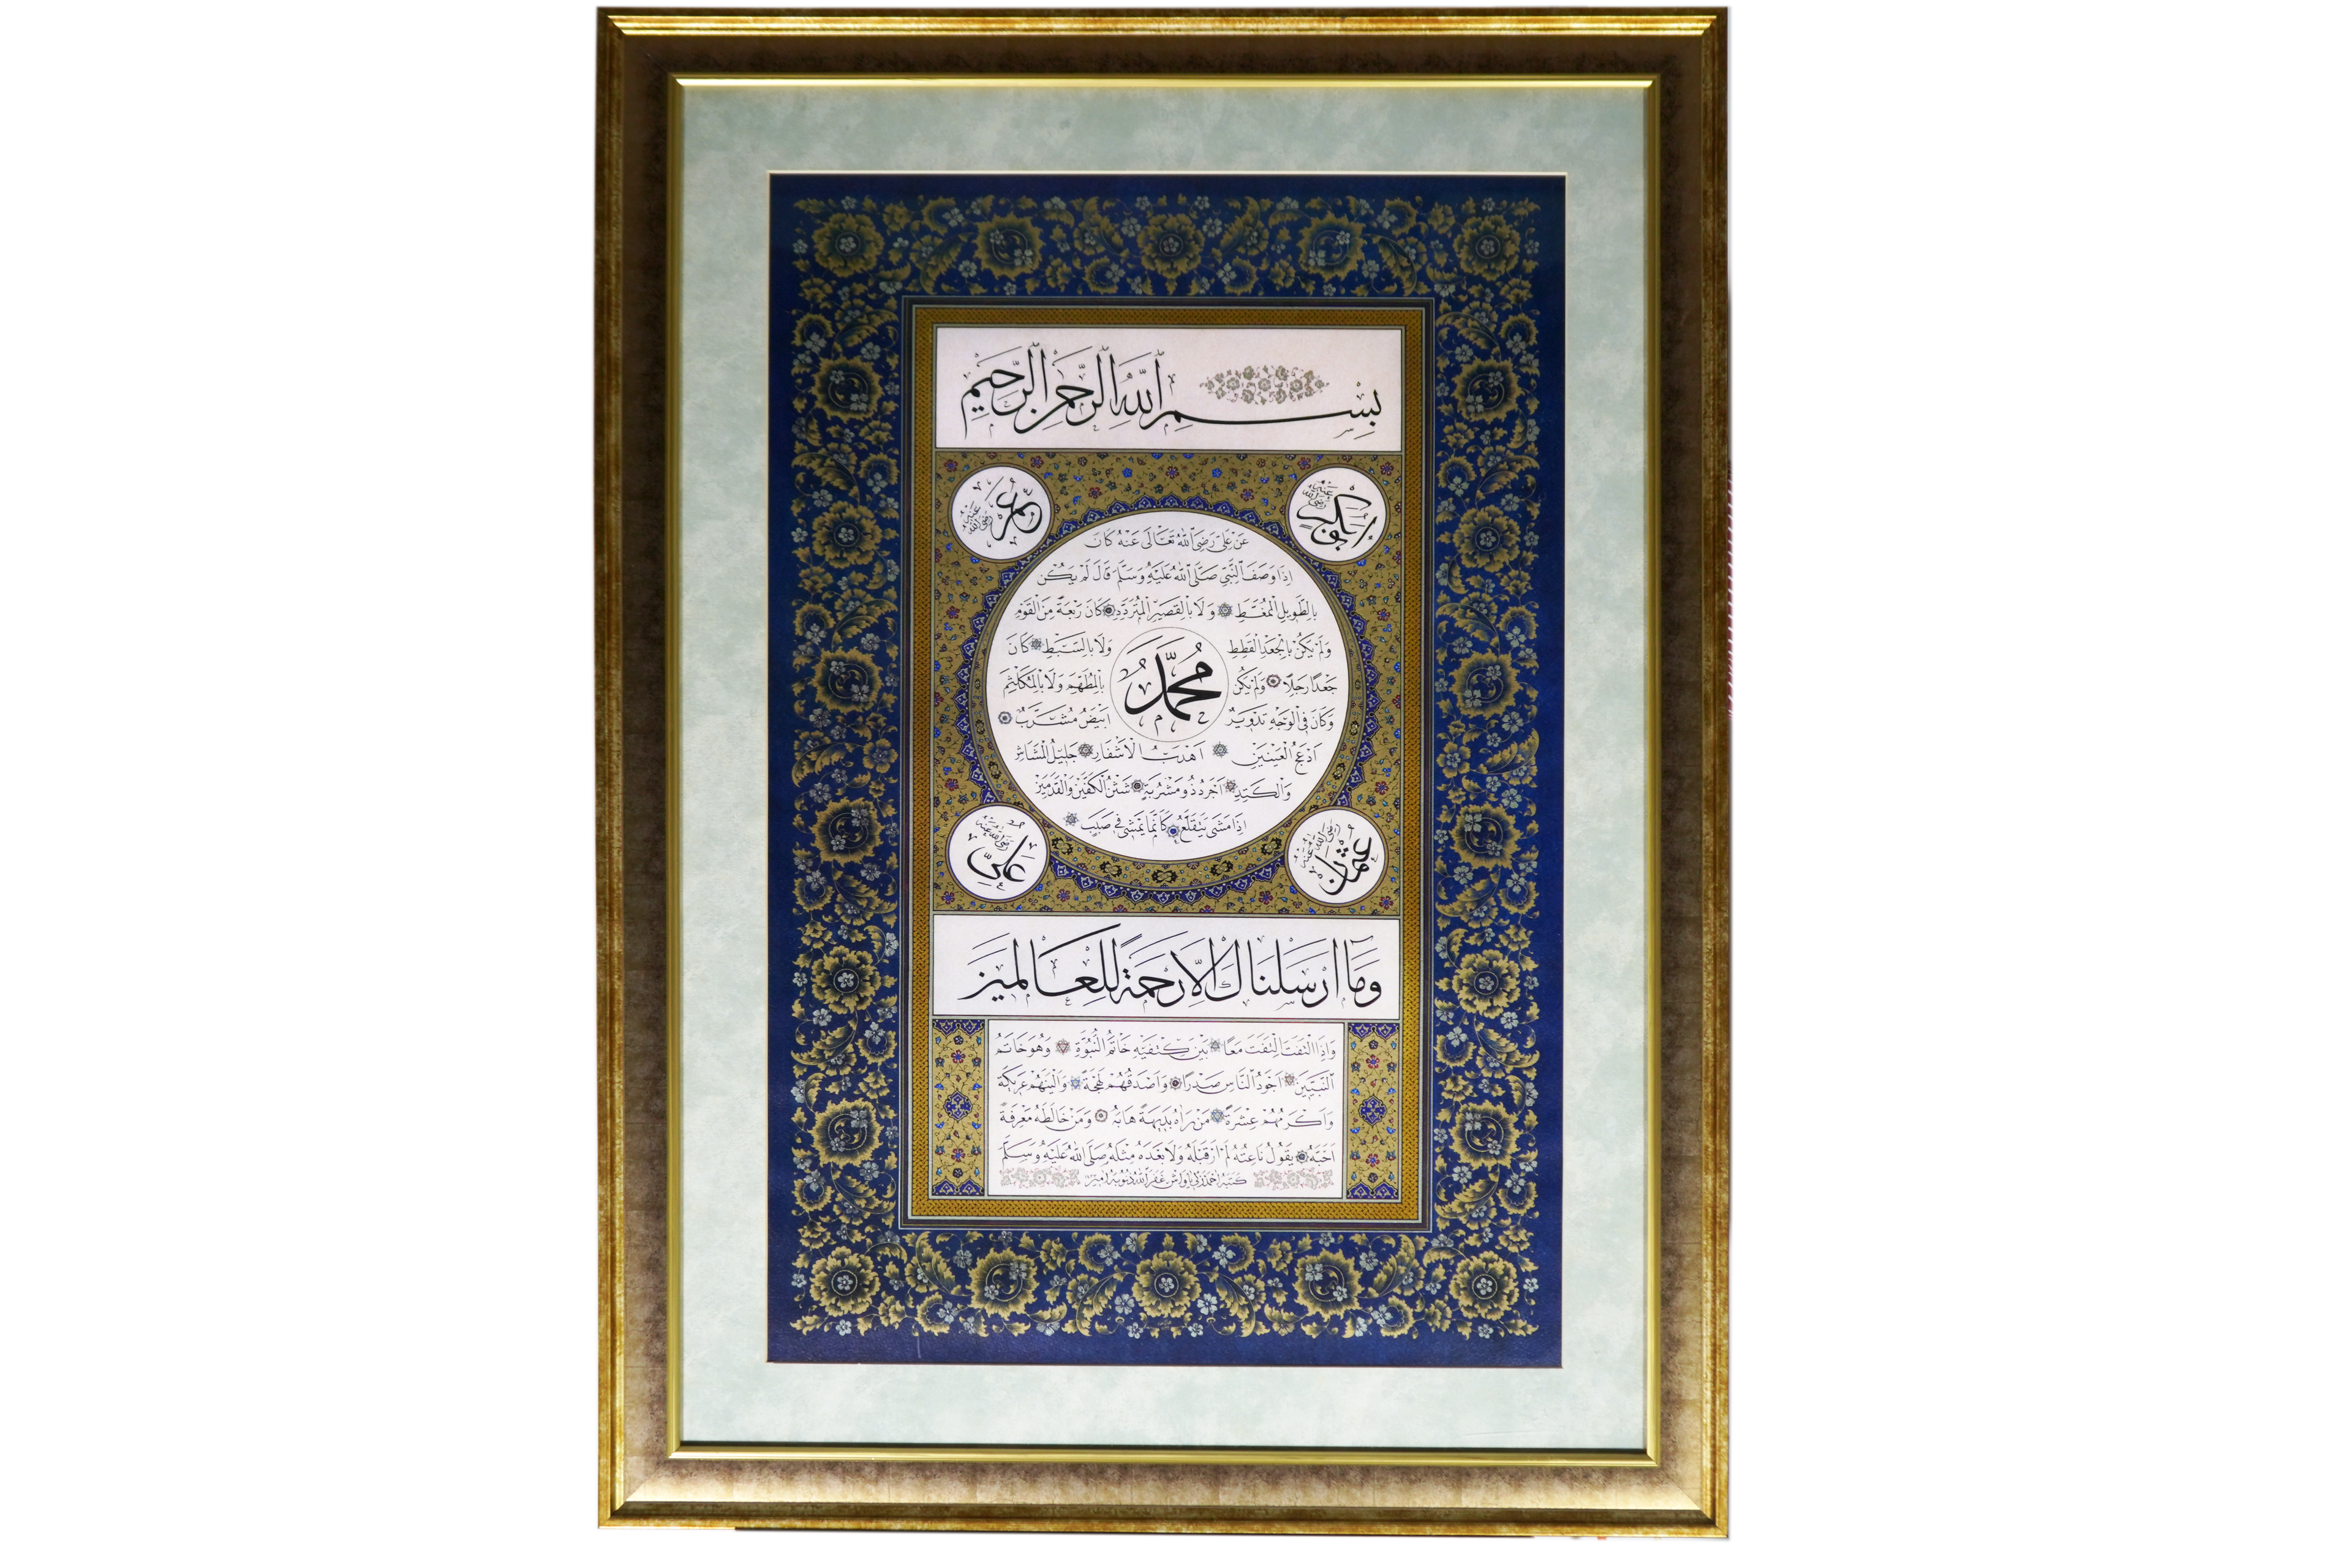 بِسْمِ اللهِ الرَّحْمٰنِ الرَّحِيْمِ
ابو بكر رضى الله عنه
عمر رضى الله عنه
عَنْ عَلِيٍّ رَضِىَ اللهُ تَعَالَى عَنْهُ كَانَ
اِذَا وَصَفَ النَّبِىَّ صَلَّى اللهُ عَلَيْهِ وَسَلَّمَ قَالَ لَمْ يَكُنْ
بِالطَّوِيلِ الْمُمَّغِطِ وَلَا بِالْقَصِيرِ الْمُتَرَدِّدِ كَانَ رَبْعَةً مِنَ الْقَوْمِ
وَلَمْ يَكُنْ بِالْجَعْدِ الْقَطِطِ وَلَا بِالسَّبْطِ كَانَ
جَعْدًا رَجِلًا وَلَمْ يَكُنْ بِالْمُطَهَّمِ وَلَا بِالْمُكَلْثَمِ
مُحَمَّدٌ
وَكَانَ فِى الْوَجْهِ تَدْوِيرٌ اَبْيَضُ مُشْرَبٌ
اَدْعَجُ الْعَيْنَيْنِ اَهْدَبُ الْاَشْفَارِ جَلِيلُ الْمُشَاشِ
وَالْكَتَدِ اَجْرَدُ ذُو مَسْرُبَةٍ شَثْنُ الْكَفَّيْنِ وَالْقَدَمَيْنِ
اِذَا مَشَى يَتَقَلَّعُ كَاَنَّمَا يَمْشِى فِى صَبَبٍ
عثمان رضى الله عنه
على رضى الله عنه
وَمَا اَرْسَلْنَاكَ اِلَّا رَحْمَةً لِلْعَالَمِينَ
وَاِذَا الْتَفَتَ الْتَفَتَ مَعًا بَيْنَ كَتِفَيْهِ خَاتَمُ النُّبُوَّةِ وَهُوَ خَاتَمُ
النَّبِيِّينَ اَجْوَدُ النَّاسِ صَدْرًا وَاَصْدَقُهُمْ لَهْجَةً وَاَلْيَنُهُمْ عَرِيكَةً
وَاَكْرَمُهُمْ عِشْرَةً مَنْ رَاٰهُ بَدِيهَةً هَابَهُ وَمَنْ خَالَطَهُ مَعْرِفَةً
اَحَبَّهُ يَقُولُ نَاعِتُهُ لَمْ اَرَ قَبْلَهُ وَلَا بَعْدَهُ مِثْلَهُ صَلَّى اللهُ عَلَيْهِ وَسَلَّمَ
كتبه احمد غفر الله ذنوبه امين